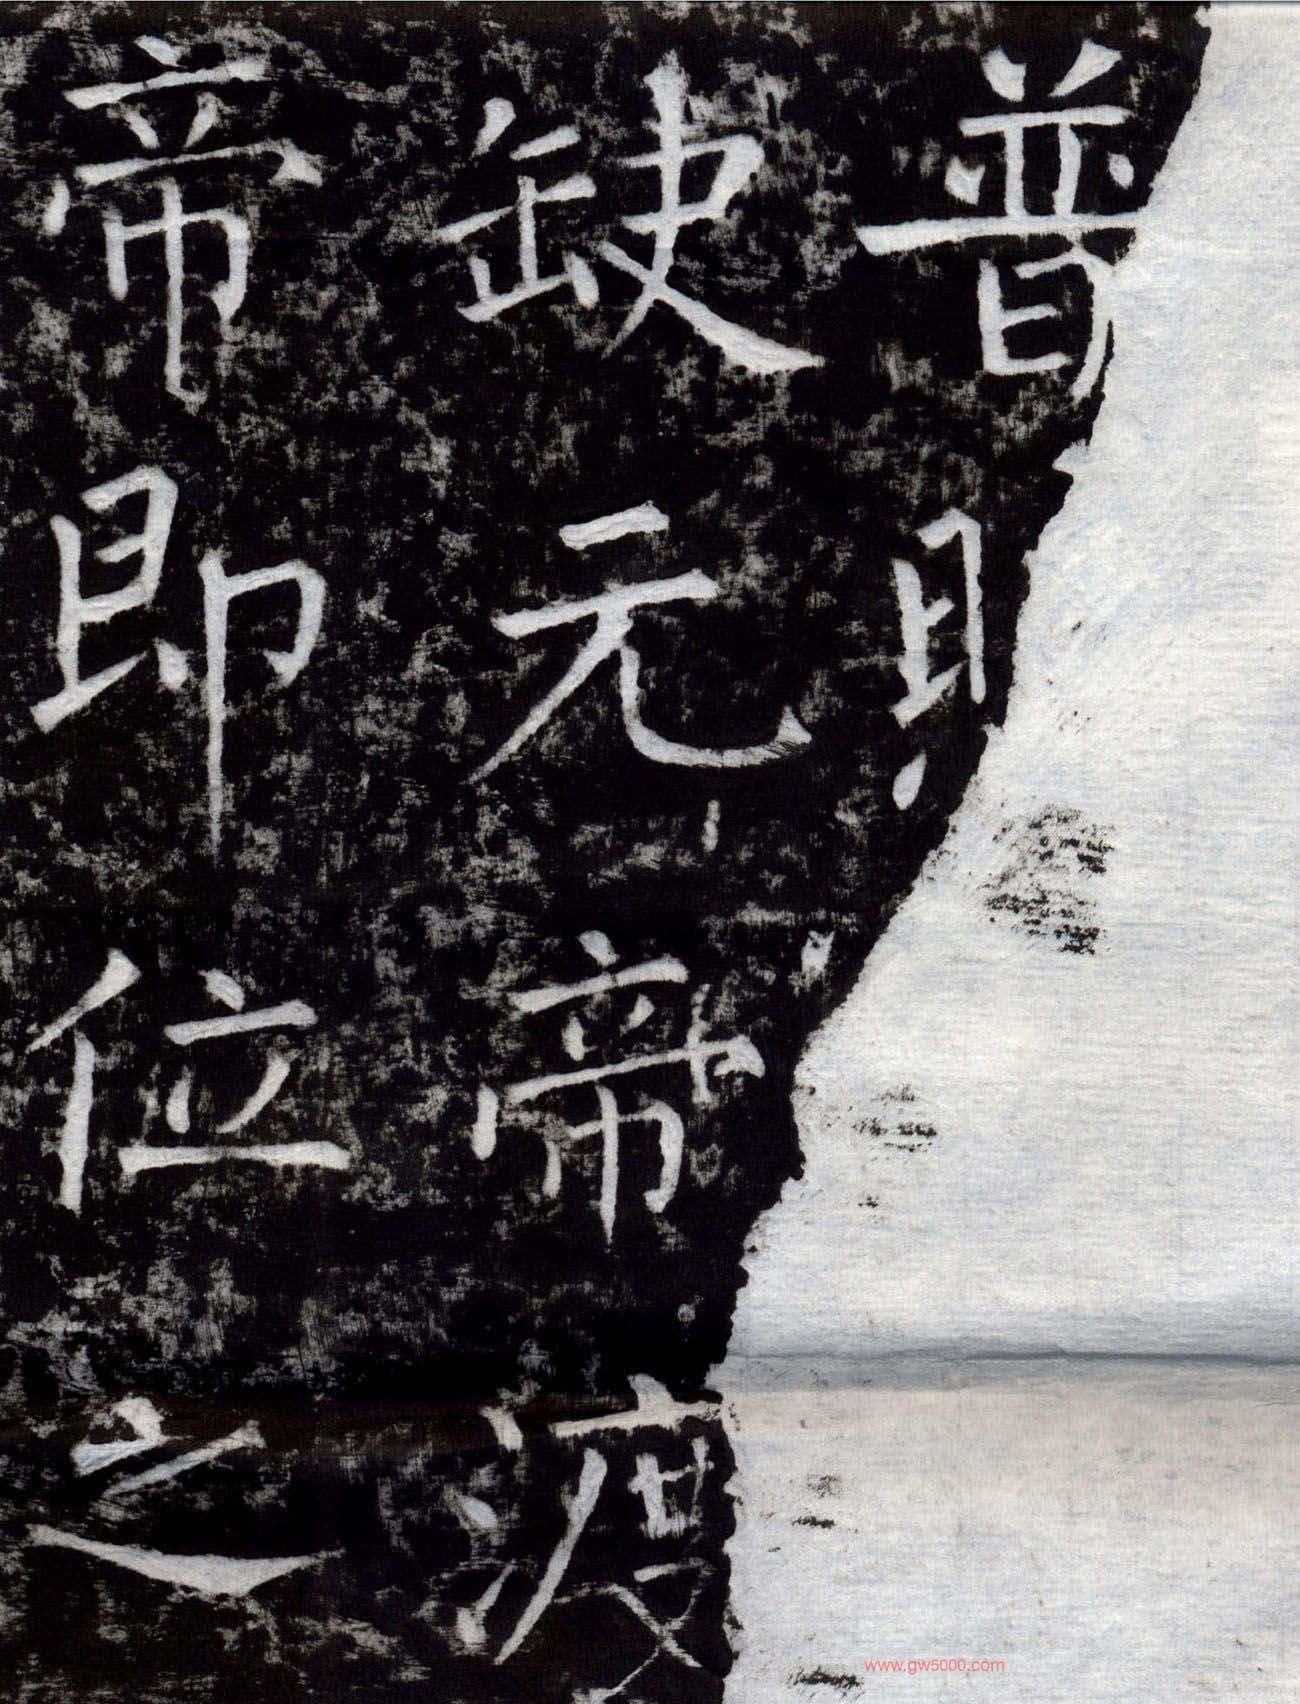 普
缺元帝渡
帝即位之
www.gw5000.com